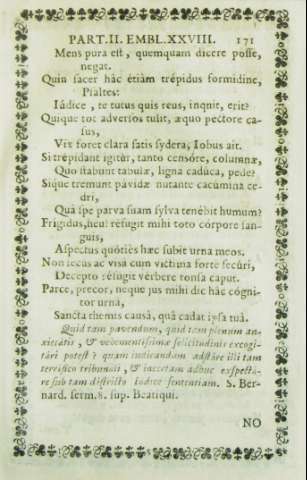 PART. II. EMBL. XXVIII. 171
Mens pura est, quemquam dicere posse,
negat.
Quin sacer hâc étiàm trépidus formidine,
Psaltes:
Iúdice, te tutus quis reus, inquit, erit?
Quique tot adversos tulit, æquo pectore ca-
sus,
Vix foret clara satis sydera, Iobus ait.
Si trépidant igitùr, tanto censóre, columnæ,
Quo stabunt tabulæ, ligna cadúca, pede?
Sique tremunt pávidæ nutante cacúmina ce-
dri,
Quâ spe parva suam sylva tenébit humum?
Frigidus, heu! réfugit mihi toto córpore san-
guis,
Aspectus quóties hæc súbit urna meos.
Non secus ac visâ cum víctima forte secúri,
Decepto réfugit vérbere tonsa caput.
Parce, precor, neque jus mihi dic hâc cógni-
tor urna,
Sancta themus causâ, quâ cadat ipsa tuâ.
Quid tam pavendum, quid tam plenum an-
xietátis, & vehementíssimæ solicitúdinis excogi-
tári potest? quam iudicandum adstáre illi tam
terrífico tribunali, & incertam adhuc exspectá-
re sub tam districto Iúdice sententiam. S. Ber-
nard. serm. 8. sup. Beatiqui.
NO